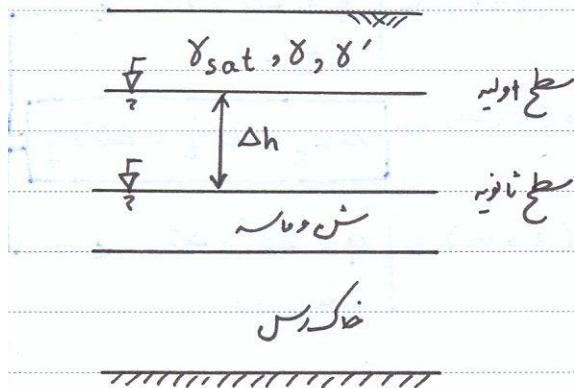 γsat , γ , γ'
سطح اولیه
Δh
سطح ثانویه
شن و ماسه
خاک رس